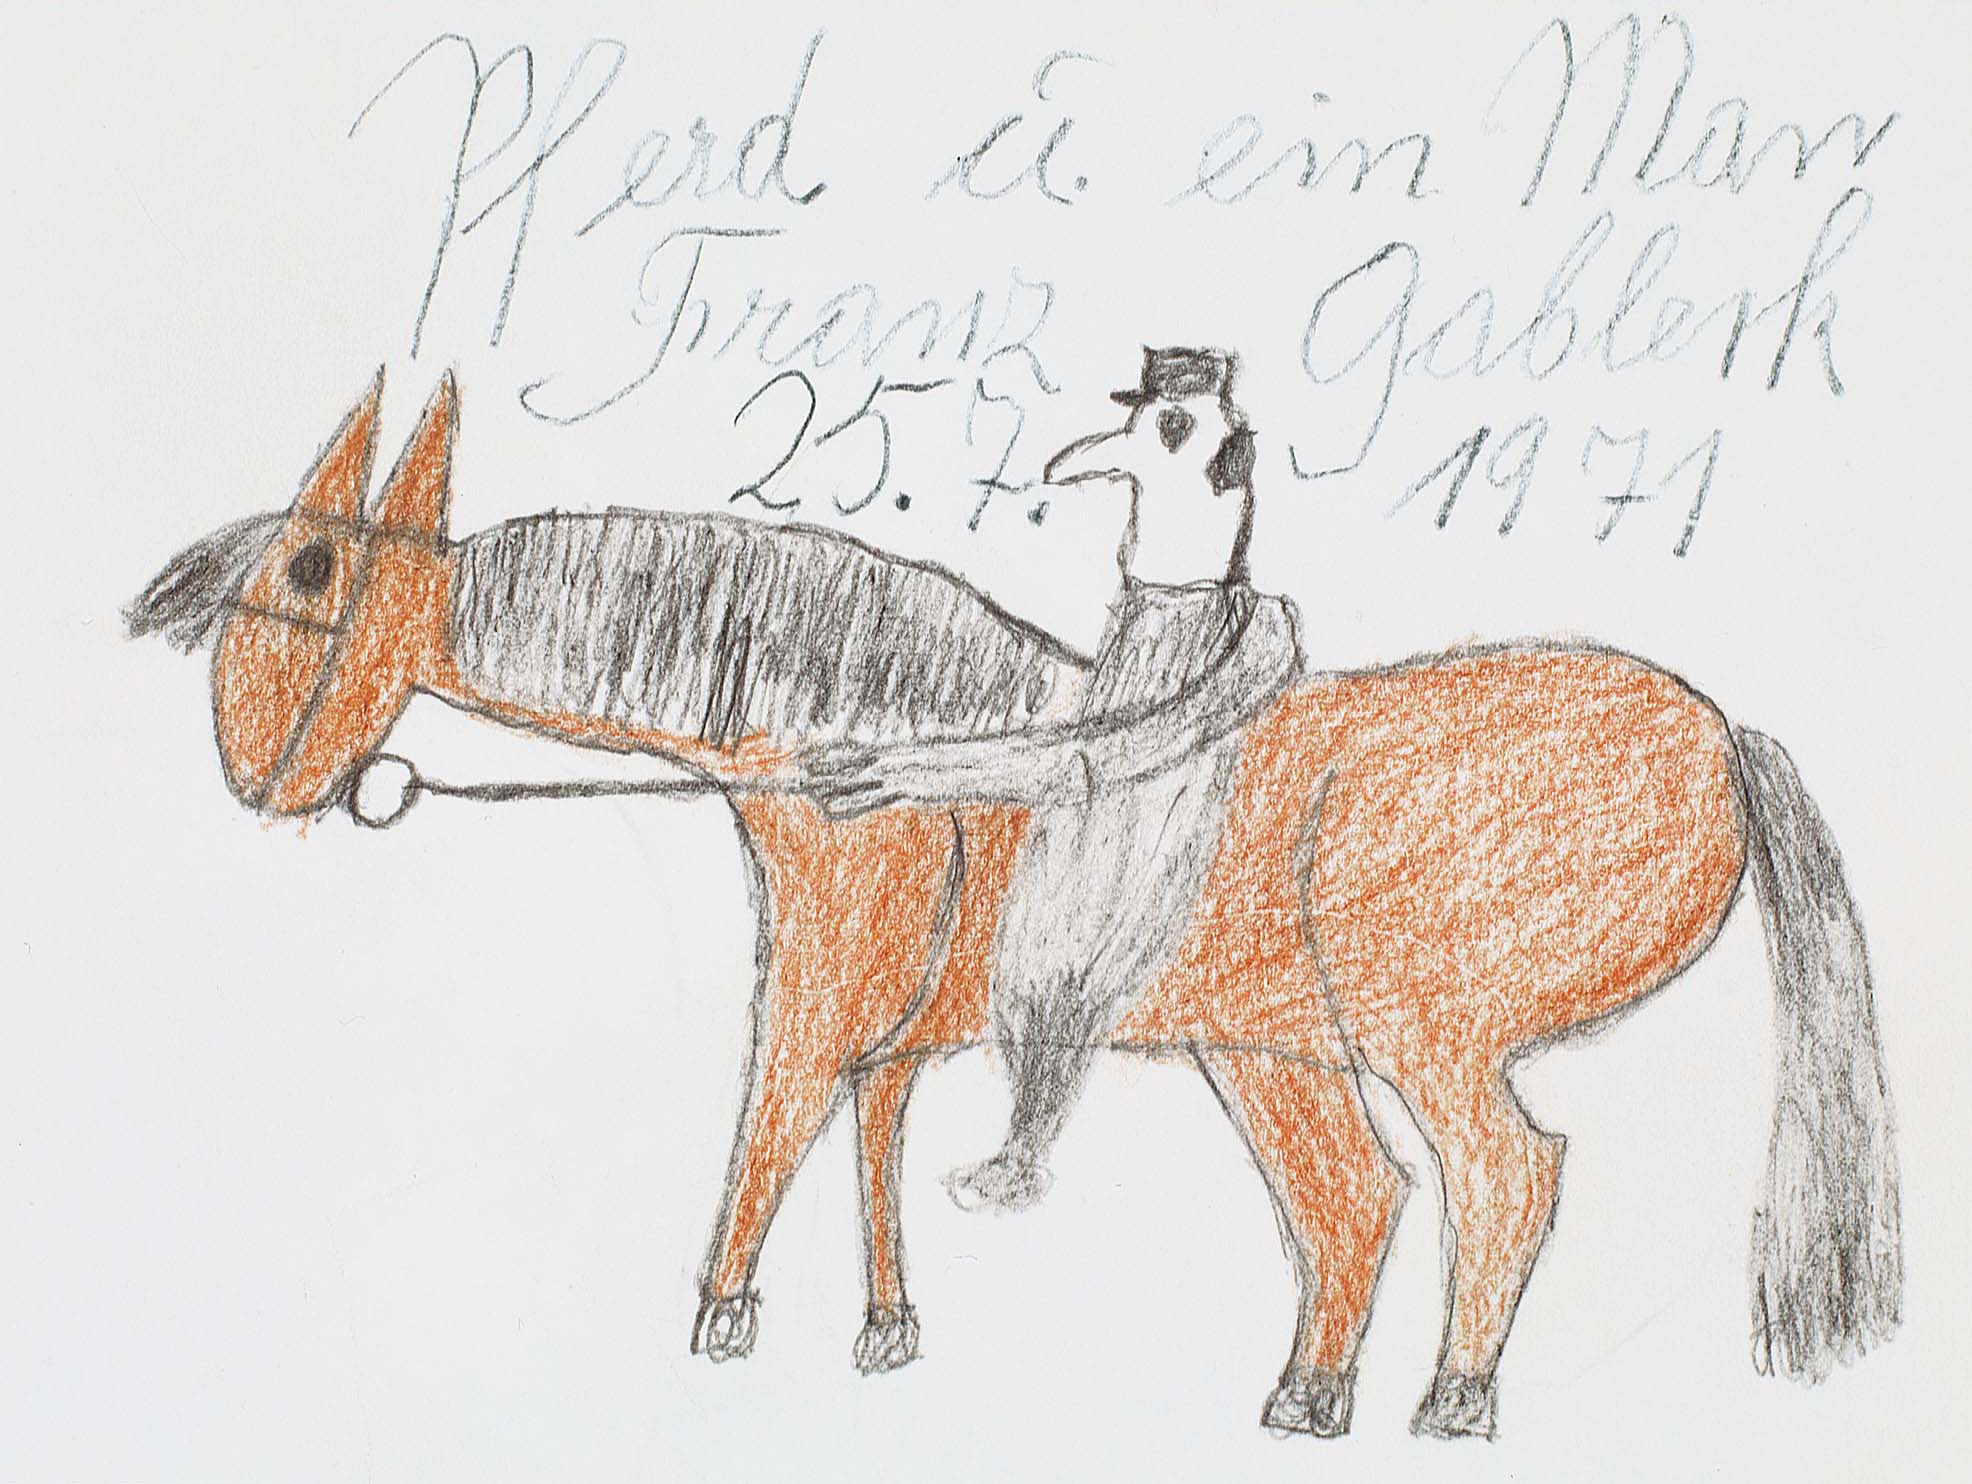 Pferd u. ein Mann
Franz Gableck
25.7. 1971